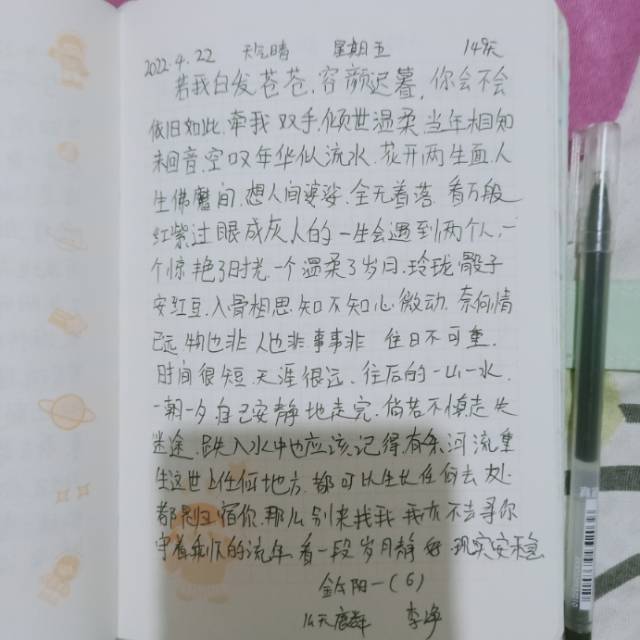 2022.4.22 天气晴 星期五 149天
若我白发苍苍，容颜迟暮，你会不会
依旧如此，牵我双手，倾世温柔当年相知
未回音，空叹年华似流水，花开两生面人
生佛魔间，想人间婆娑，全无着落，看万般
红紫过眼成灰人的一生会遇到两个人，一
个惊艳了时光一个温柔了岁月，玲珑骰子
安红豆，入骨相思知不知心微动，奈何情
已远物也非人也非事事非 往日不可重，
时间很短，天涯很远，往后的一山一水，
一朝一夕自己安静地走完，倘若不慎走失
迷途，跌入水中也应该记得有条河流重
生这世上任何地方，都可以生长任何去处
都是归宿，那么别来找我我亦不去寻你
守着剩下的流年看一段岁月静好现实安稳
一(6)